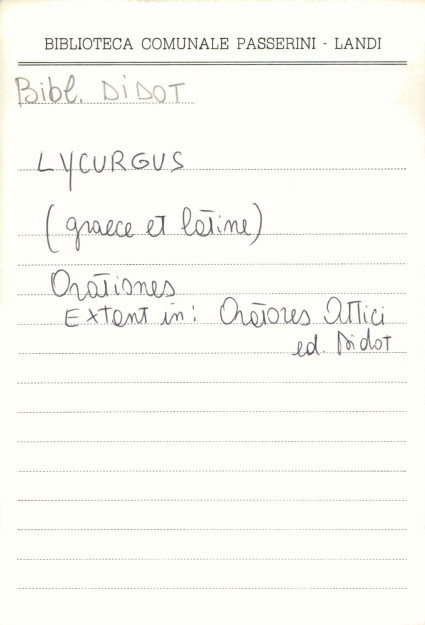 BIBLIOTECA COMUNALE PASSERINI - LANDI
Bibl. DIDOT
LYCURGUS
(graece et latine)
Orationes
Extant in: Oratores Attici
ed. Didot